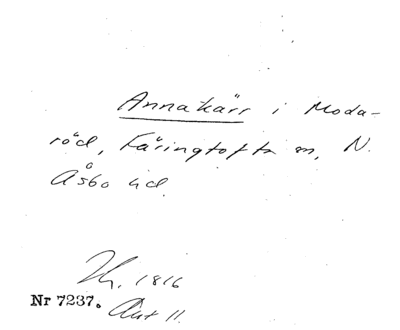 Annakärr i Moda-
röd, Färingtofta sn, N.
Åsbo hd.
1816
Nr 7237. Akt 11.